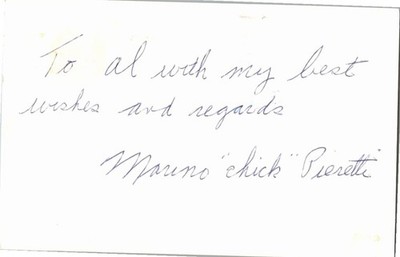 To al with my best
wishes and regards
Marino "chick" Pieretti